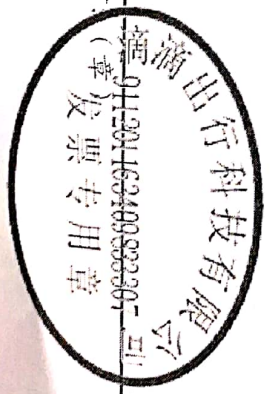 滴滴出行科技有限公司
911201163409833307
发票专用章
（章）